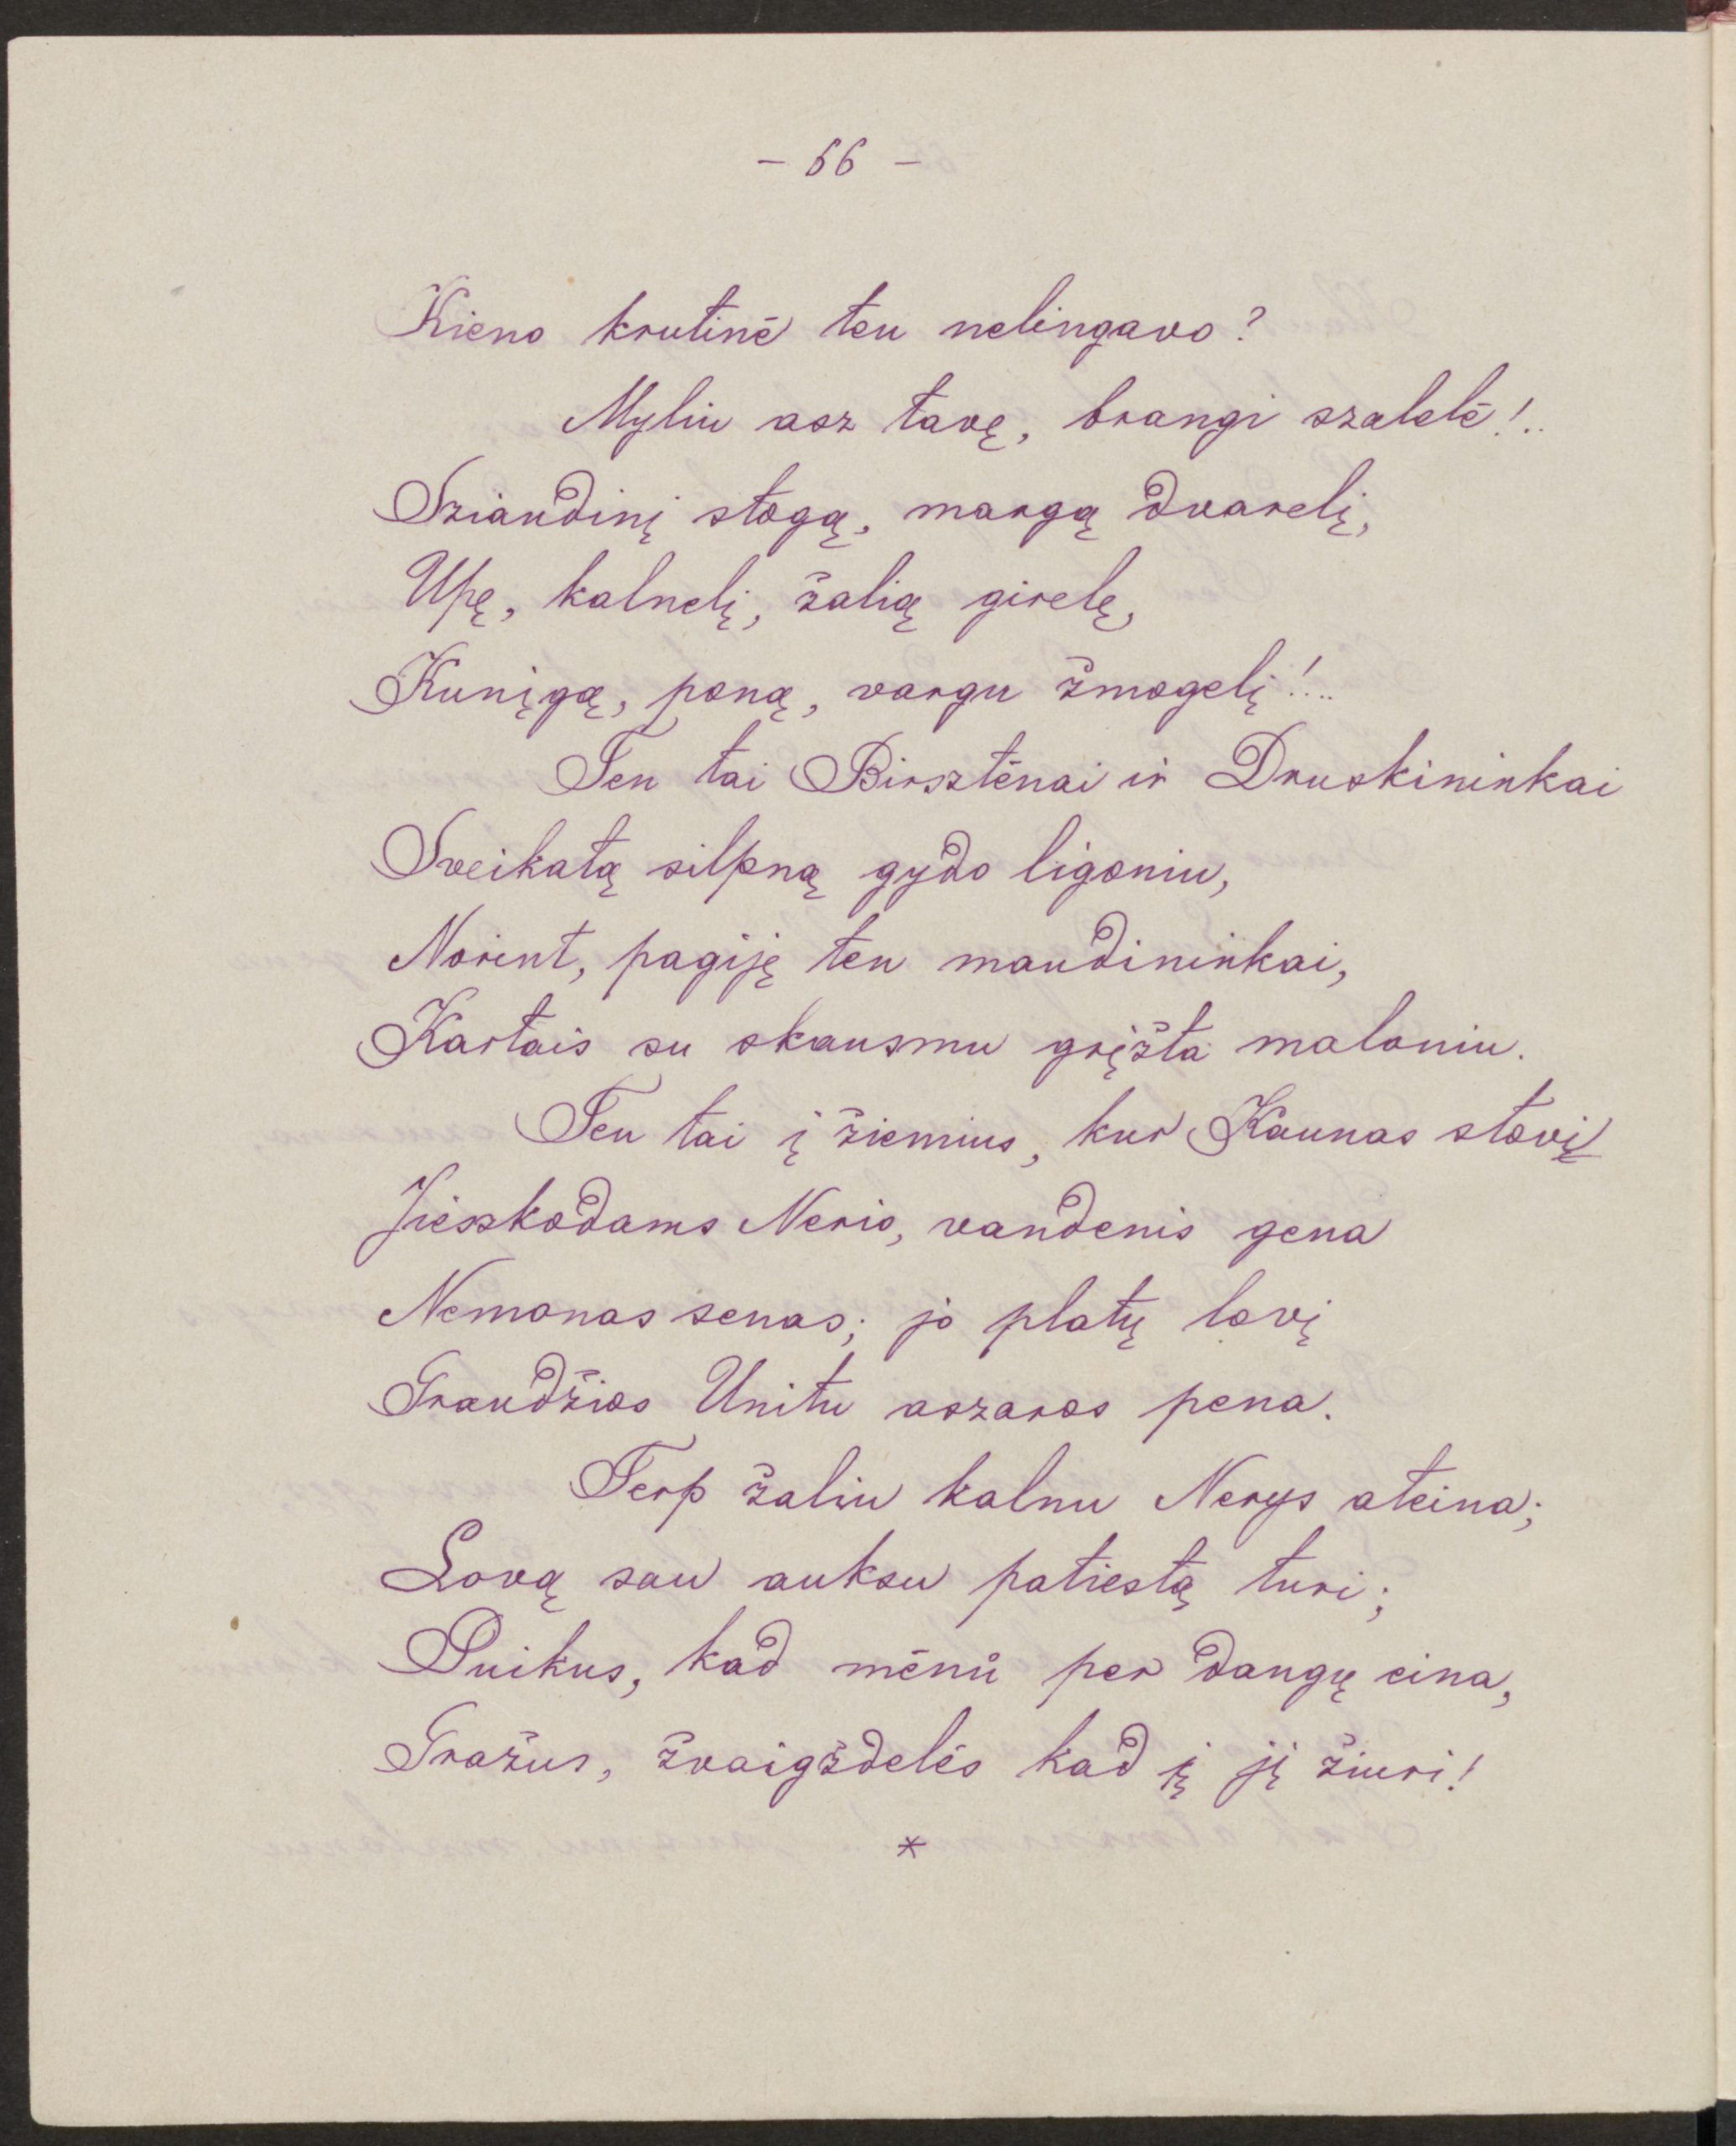 - 66 -
Kieno krutinė ten nelingavo?
Myliu asz tavę, brangi szalelė!..
Sziaudinį stogą, margą dvarelį,
Upę, kalnelį, žalią girelę,
Kunįgą, poną, vargu žmogelį!...
Ten tai Birsztėnai ir Druskininkai
Sveikatą silpną gydo ligoniu,
Norint, pagiję ten maudininkai,
Kartais su skausmu gręžta maloniu.
Ten tai į žiemius, kur Kaunas stovį
Jieszkodams Nerio, vandenis gena
Nemonas senas; jo platų lovį
Graudžios Unitu aszaros pena.
Terp žaliu kalnu Nerys ateina;
Lovą sau auksu patiestą turi;
Puikus, kad mėnů per dangų eina,
Gražus, žvaigždelės kad į jį žiuri!
*